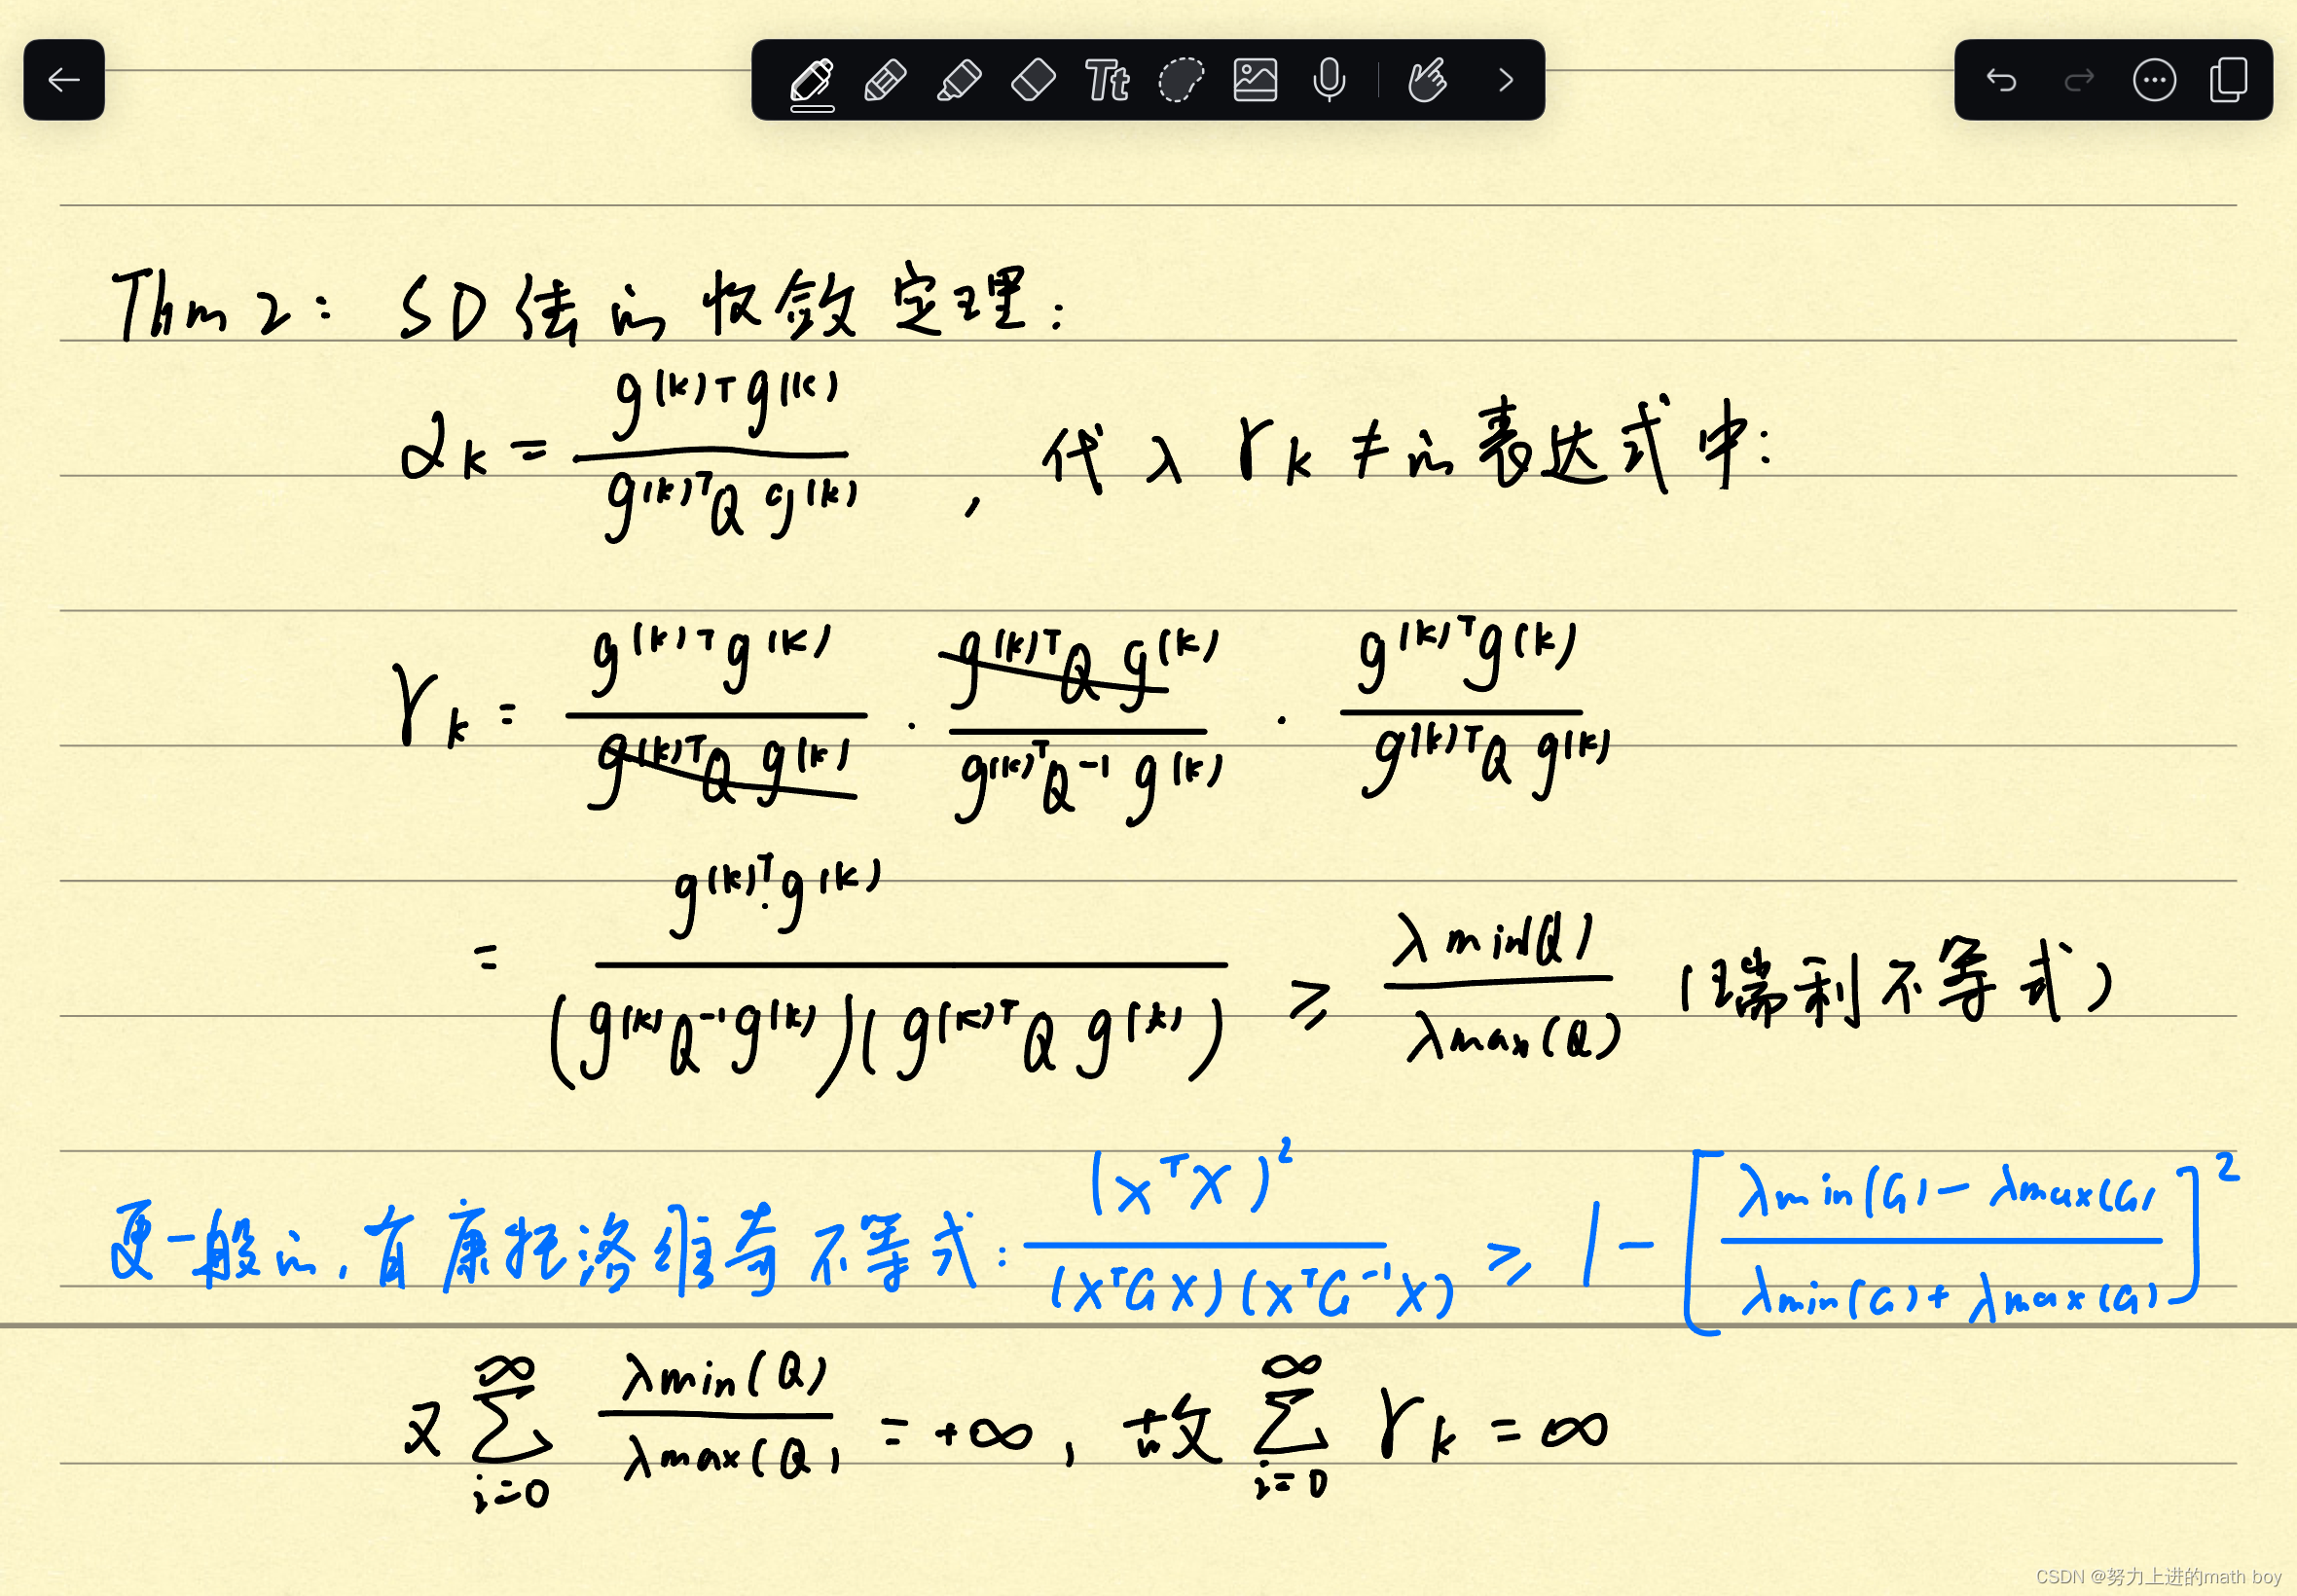 Tt
Thm 2: SD法的收敛定理:
αk = g(k)T g(k) / g(k)T Q g(k) , 代入 γk ≠ 的表达式中:
γk = g(k)T g(k) / g(k)T Q g(k) · g(k)T Q g(k) / g(k)T Q⁻¹ g(k) · g(k)T g(k) / g(k)T Q g(k)
= g(k)T · g(k) / (g(k) Q⁻¹ g(k)) (g(k)T Q g(k)) ≥ λmin(Q) / λmax(Q) (瑞利不等式)
更一般的, 有康托洛维奇不等式: (XᵀX)² / (XᵀGX)(XᵀG⁻¹X) ≥ 1 - [ λmin(G) - λmax(G) / λmin(G) + λmax(G) ]²
又 ∑ i=0 ∞ λmin(Q) / λmax(Q) = +∞, 故 ∑ i=0 ∞ γk = ∞
CSDN @努力上进的math boy